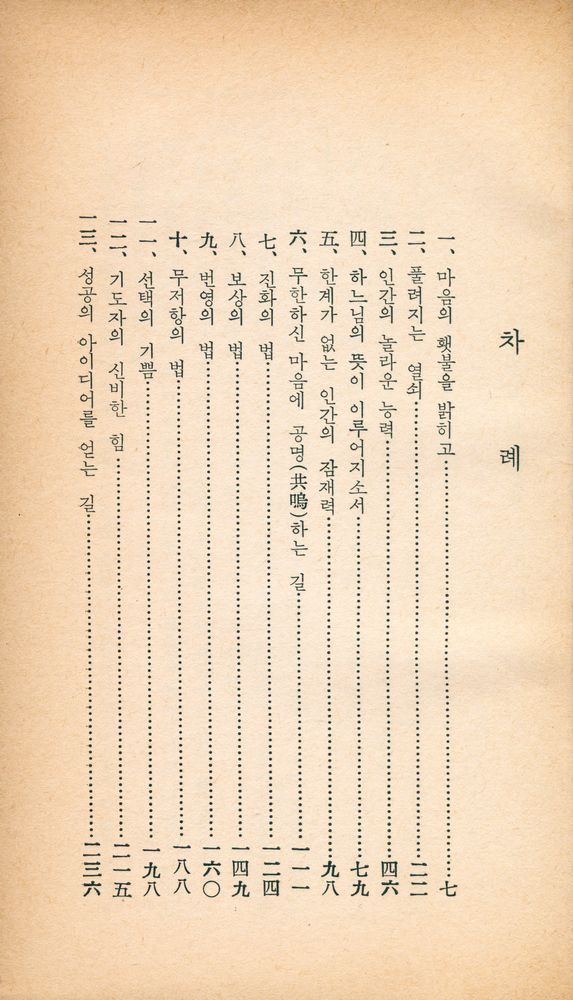 차례
一、마음의 횃불을 밝히고……七
二、풀려지는 열쇠……二二
三、인간의 놀라운 능력……四六
四、하느님의 뜻이 이루어지소서……七九
五、한계가 없는 인간의 잠재력……九八
六、무한하신 마음에 공명(共鳴)하는 길……一一一
七、진화의 법……一二四
八、보상의 법……一四九
九、번영의 법……一六〇
十、무저항의 법……一八八
一一、선택의 기쁨……一九八
一二、기도자의 신비한 힘……二一五
一三、성공의 아이디어를 얻는 길……二三六